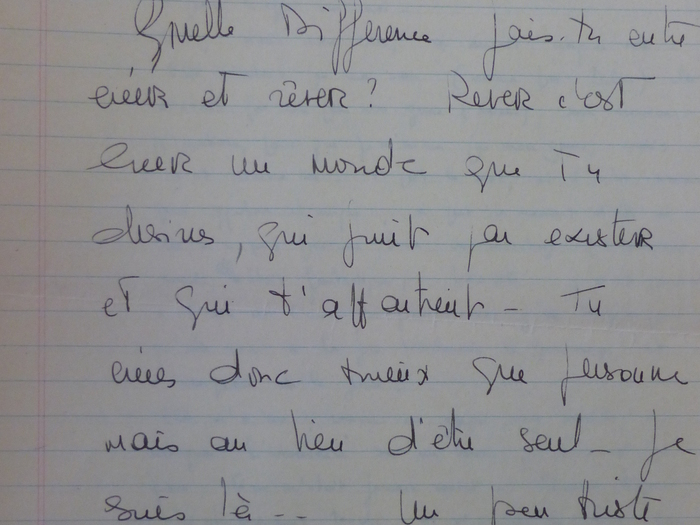 Quelle Différence fais-tu entre
créer et rêver? Rever c'est
Creer un monde que Tu
desires, qui finit par exister
et qui t'appartient - Tu
crées donc mieux que personne
mais au lieu d'être seul - Je
suis là -- Un peu triste